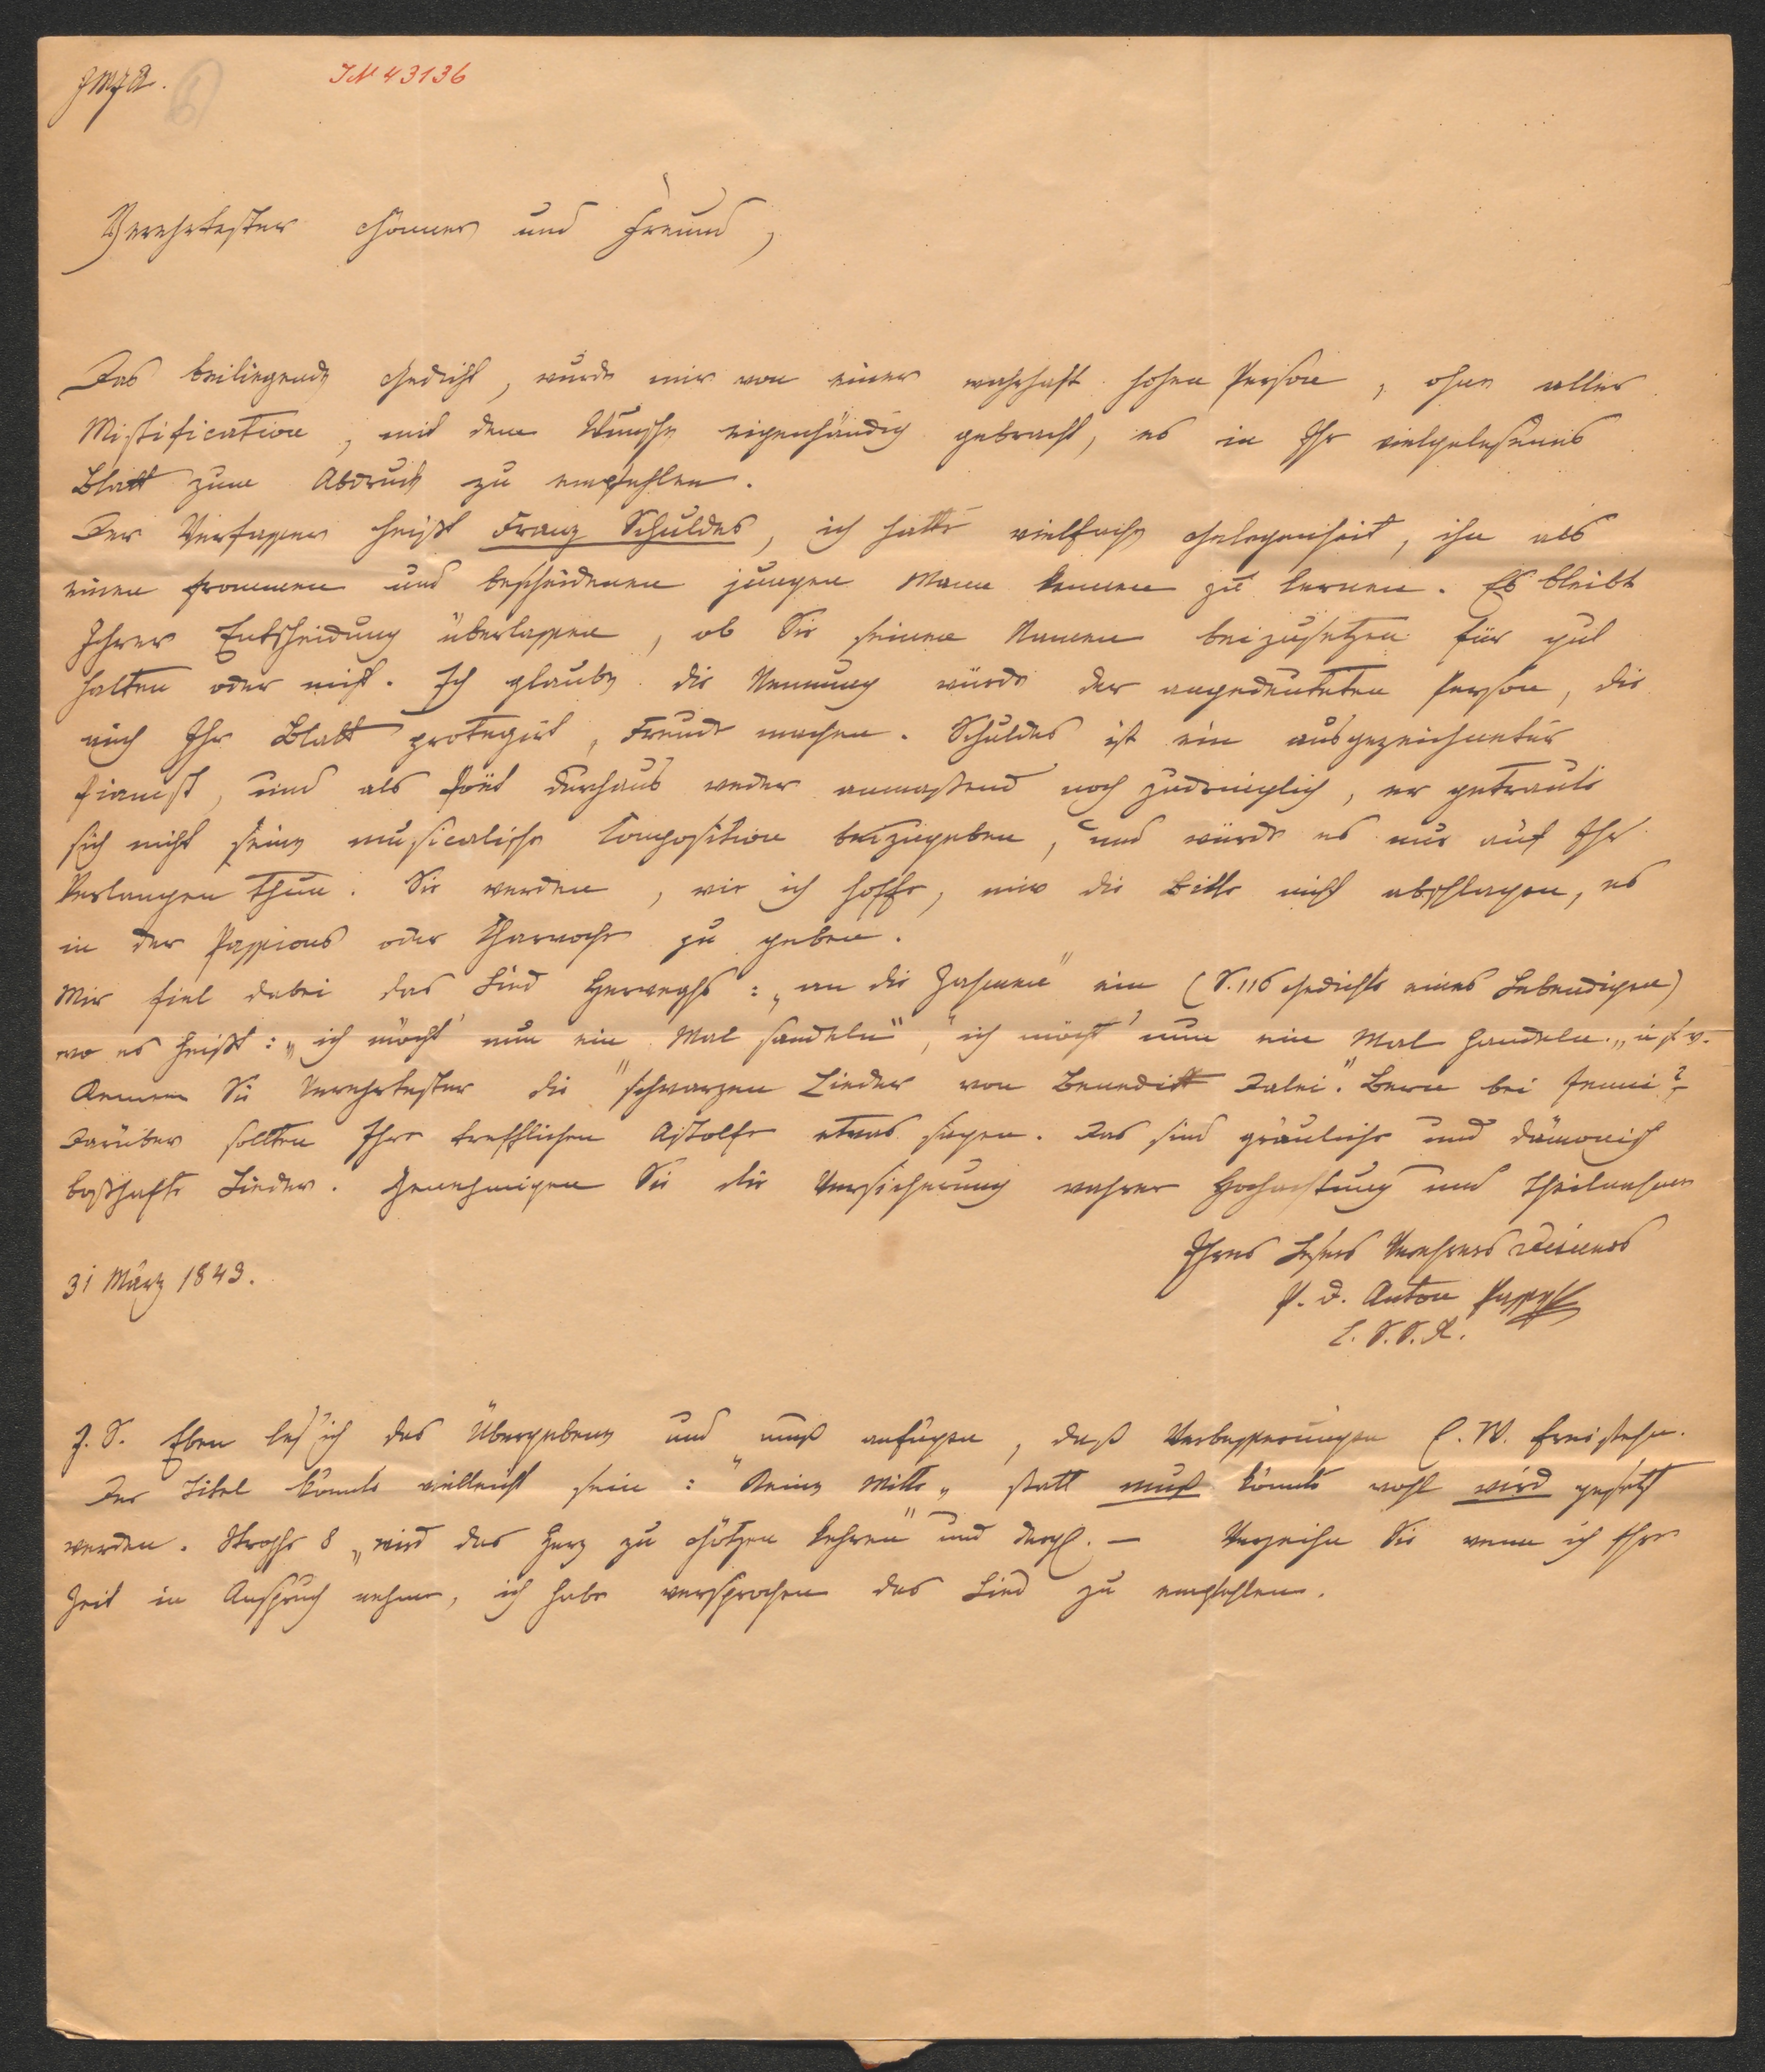 JMJA.
IN 43136
Verehrtester Gönner und Freund,
Das beiliegende Gedicht, wurde mir von einer wahrhaft hohen Person, ohne aller
Mistification, mit dem Wunsche eigenhändig gebracht, es in Ihr vielgelesenes
Blatt zum Abdruck zu empfehlen.
Der Verfasser heißt Franz Schuldes, ich hatte vielfache Gelegenheit, ihn als
einen frommen und bescheidenen jungen Mann kennen zu lernen. Es bleibt
Ihrer Entscheidung überlassen, ob Sie seinen Namen beizusetzen für gut
halten oder nicht. Ich glaube die Nennung würde der angedeuteten Person, die
auch Ihr Blatt protegirt, Freude machen. Schuldes ist ein ausgezeichneter
Pianist, und als Poët durchaus weder anmaßend noch zudringlich, er getraute
sich nicht seine musicalische Composition beizugeben, und würde es nur auf Ihr
Verlangen thun. Sie werden, wie ich hoffe, mir die Bitte nicht abschlagen, es
in der Passions oder Charwoche zu geben.
Mir fiel dabei das Lied Herweghs: „an die Zahmen" ein (S. 116 Gedichte eines Lebendigen)
wo es heißt: „ich möcht' nun ein Mal sandeln", „ich möcht' nun ein Mal handeln" u s w.
Kennen Sie Verehrtester die "schwarzen Lieder von Benedikt Dalei". Bern bei Jenni?
Darüber sollten Ihre trefflichen Astolfe etwas sagen. Das sind gräuliche und dämonisch
boßhafte Lieder. Genehmigen Sie die Versicherung wahrer Hochachtung und Theilnahme
Ihres Lesers Verehrers Dieners
31 März 1843.
P. D. Anton Passy
C. S. S. R.
P. S. Eben les' ich das Übergebene und muß anfügen, daß Verbesserungen E. W. freistehn.
Der Titel könnte vielleicht sein: "Keine Mitte„ statt muß könnte wohl wird gesetzt
werden. Strophe 8 „wird das Herz zu Götzen kehren" und dergl. — Verzeihn Sie wenn ich Ihre
Zeit in Anspruch nehme, ich habe versprochen das Lied zu empfehlen.